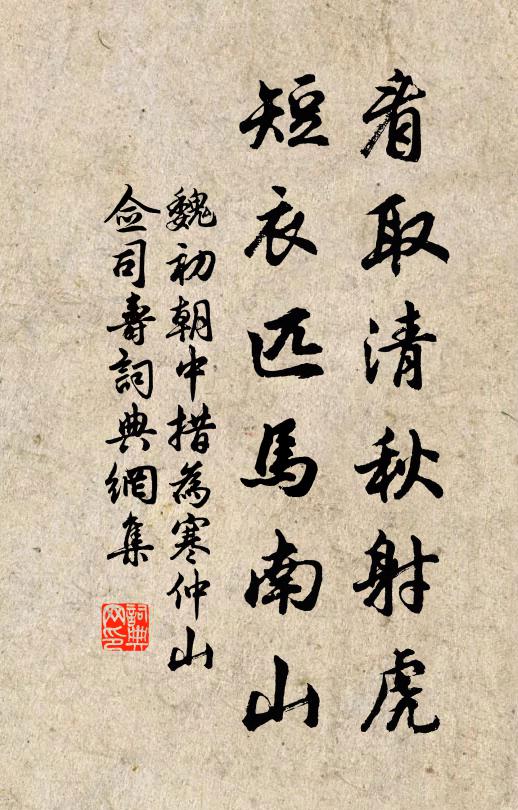 看取清秋射虎
短衣匹馬南山
魏初朝中措為寒仲山
僉司壽詞典網集
詞典網印